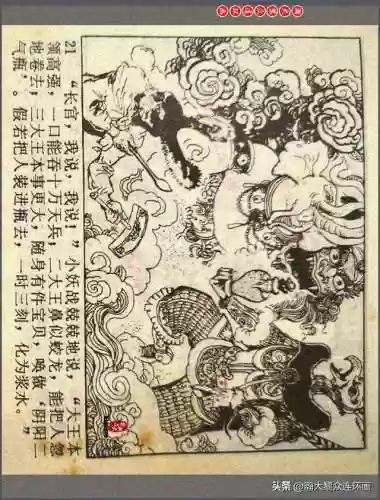 21 “长官，我说，我说！”小妖战兢兢地说，“大王本
领高强，一口能吞十万天兵；二大王鼻似蛟龙，能把人忽
地卷去；三大王本事更大，随身有件宝贝，唤做‘阴阳二
气瓶’。假若把人装进瓶去，一时三刻，化为浆水。”
头条 @瀚大黎众连环画